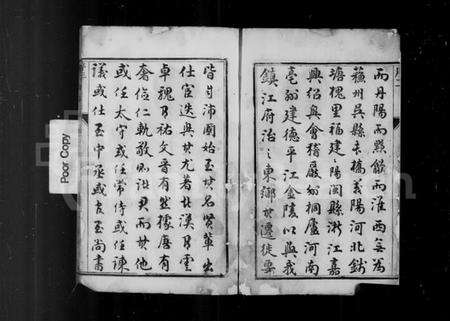 而丹陽而黟歙而淮西無為
蘇州吳縣木橋義陽河北錢
塘槐里福建之閩縣浙江嘉
興紹興會稽嚴州桐廬河南
亳州建德平江金陵以與我
鎮江府治之東鄉其遷徙
皆自沛國始至其名賢輩出
仕宦迭興其尤著北漢有雲
卓魏有祐文晉有然據唐有
奢儉仁軌敬則諸君而其他
或任太守或任常侍或任諫
議或仕至中丞或官至尚書
Poor Copy